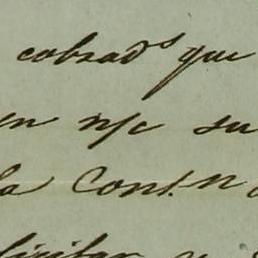 cobrad.s que
en n/c su
la Cont.n